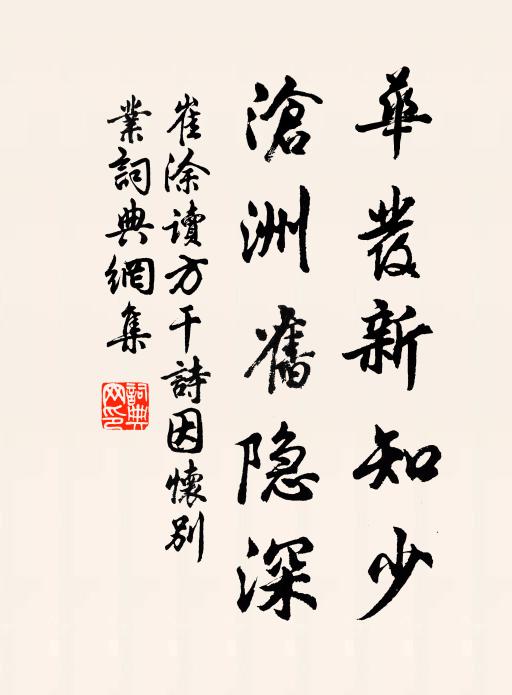 華發新知少
滄洲舊隱深
崔涂讀方干詩因懷別
業詞典網集
詞典
网印